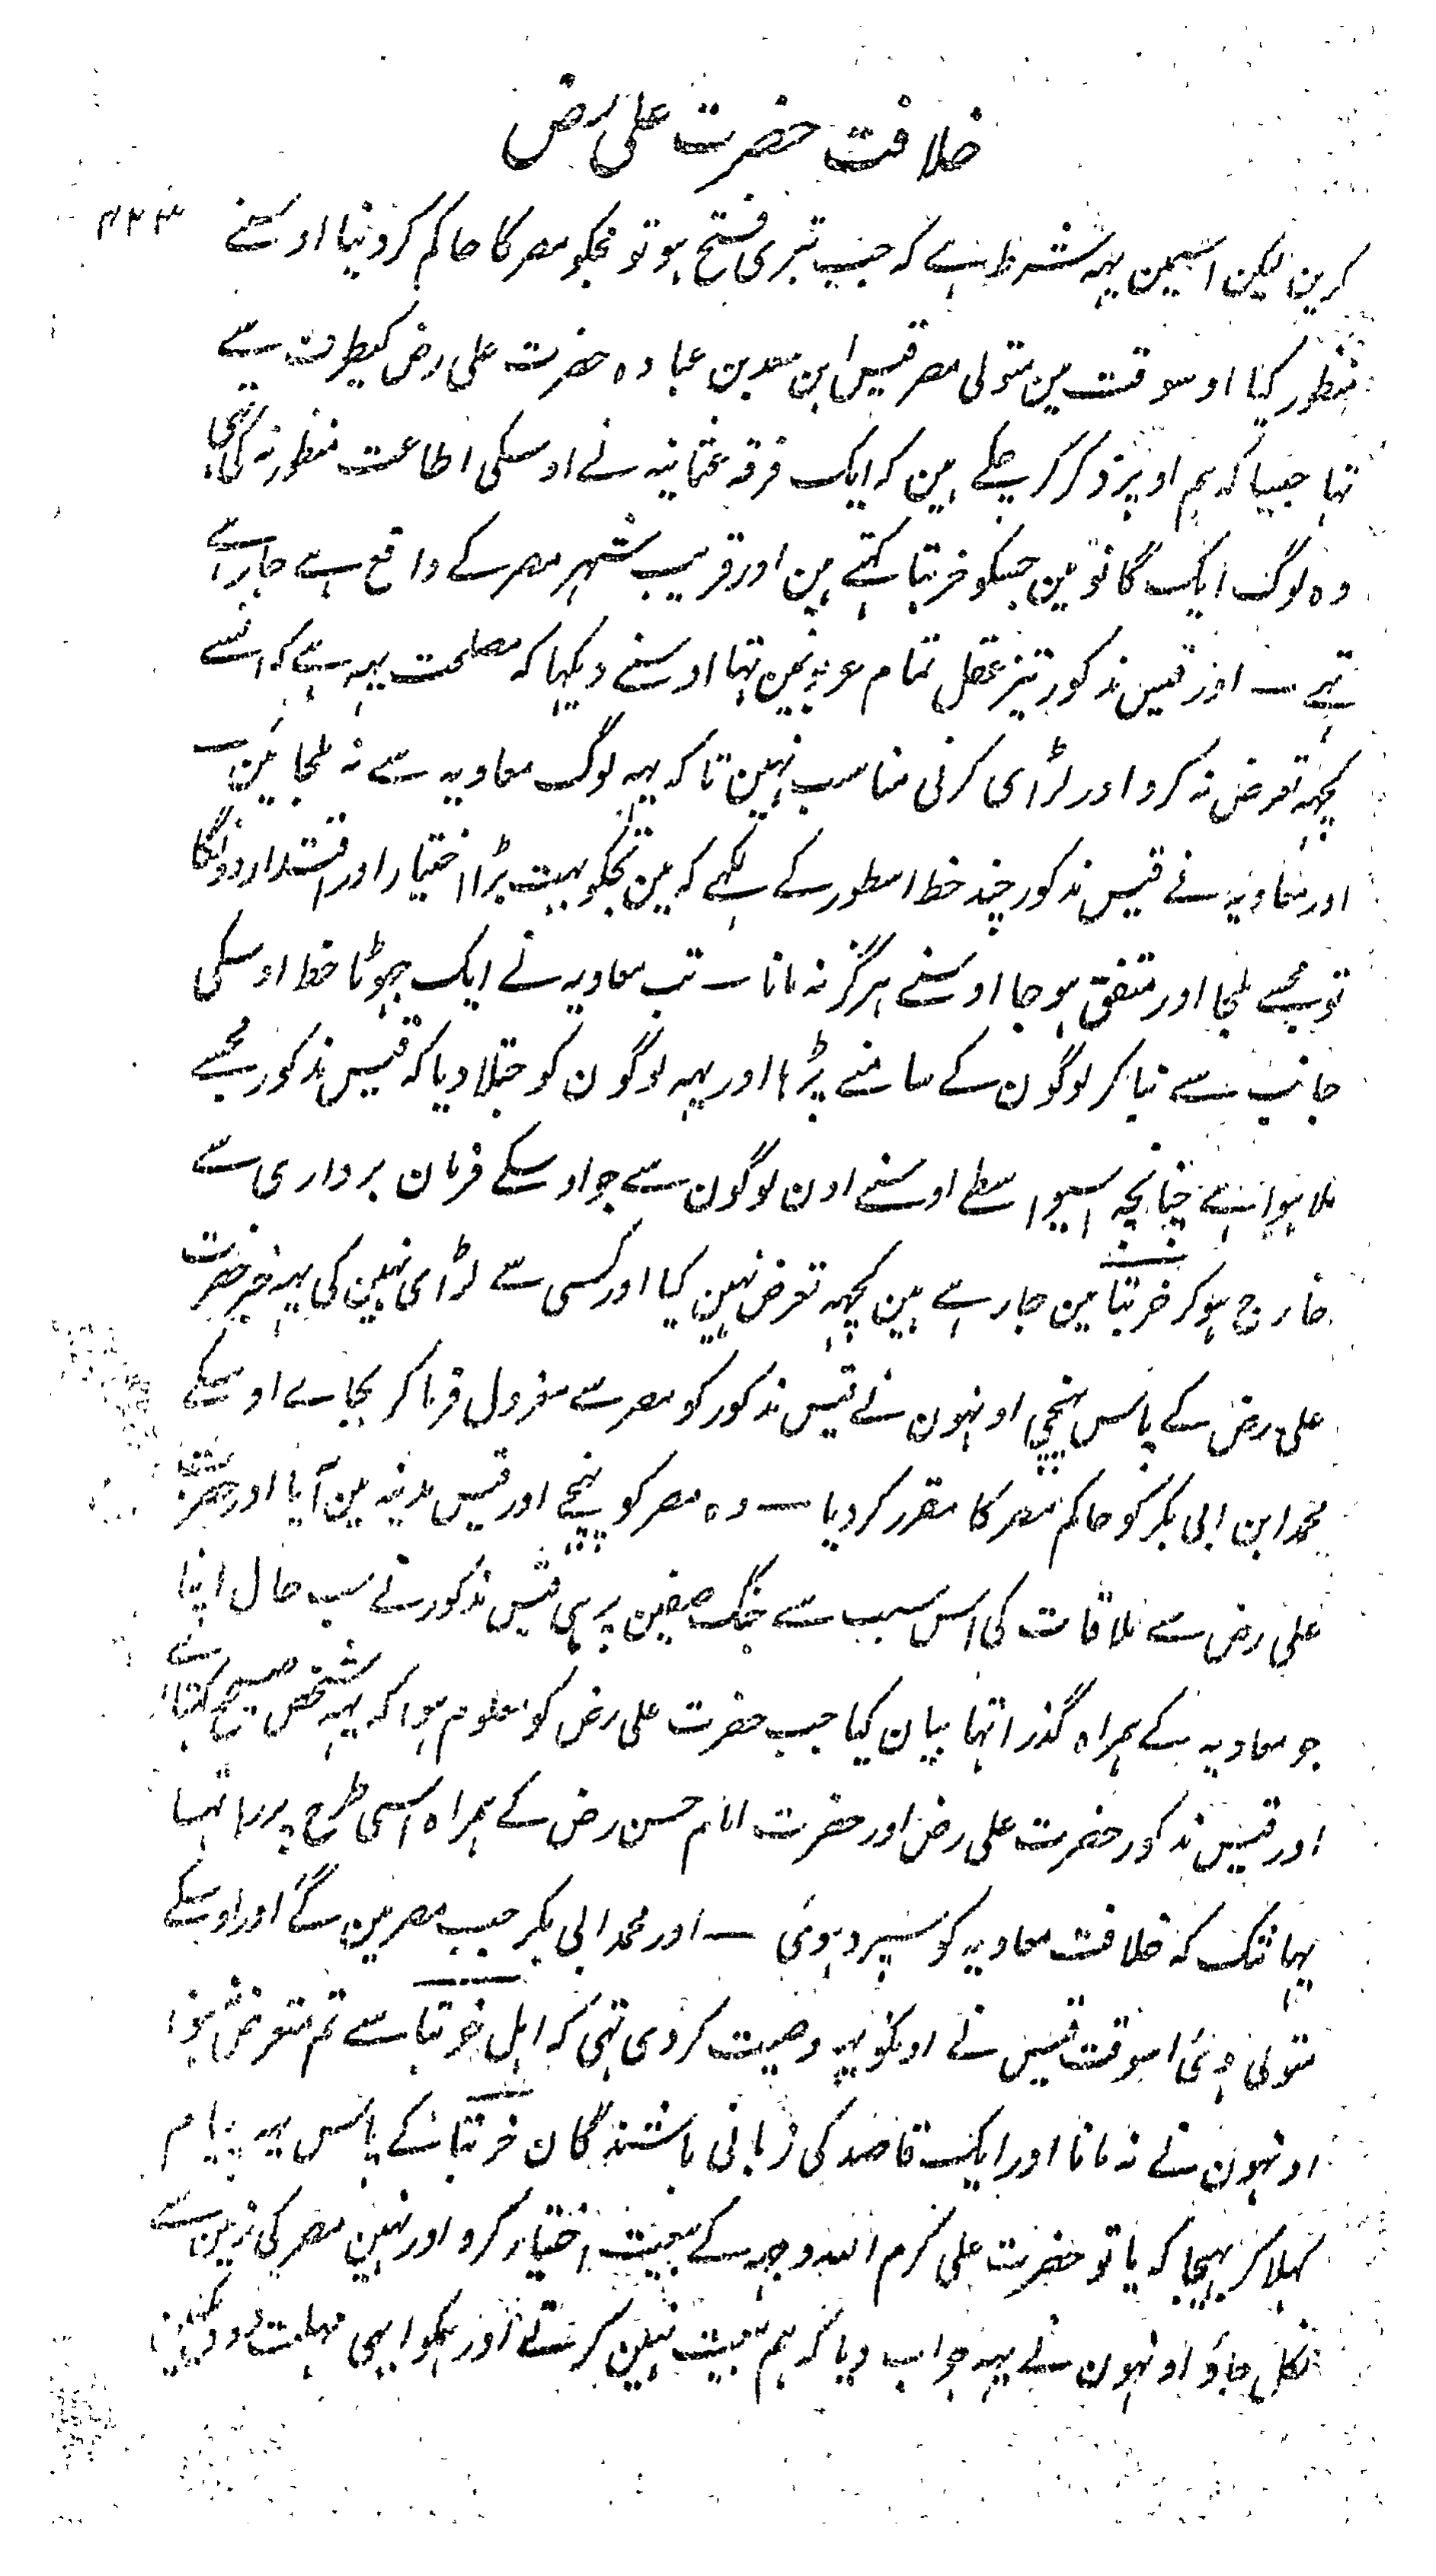 خلافت حضرت علی رض
۴۳۳
کرین لیکن اسیمن یہہ شرط ہے کہ جب تیری فتح ہو تو مجکو مصر کا حاکم کر دنیا اوسنے
منظور کیا اوسوقت مین متولی مصر قیس ابن سعد بن عبادہ حضرت علی رض کیطرف سے
تہا جیسا کہ ہم اوپر ذکر کر چکے ہین کہ ایک فرقہ عثمانیہ نے اوسکی اطاعت منظور نہ کی تہی
وہ لوگ ایک گانو مین جسکو خربتا کہتے ہین اور قریب شہر مصر کے واقع ہے جا رہے
تہے — اور قیس مذکور تیز عقل تمام عربونمین تہا اوسنے دیکہا کہ مصلحت یہہ ہے کہ انسے
کچہہ تعرض نہ کرو اور لڑای کرنی مناسب نہین تا کہ یہہ لوگ معاویہ سے نہ ملجائین —
اور معاویہ نے قیس مذکور چند خط اسطور کے لکہے کہ مین تجکو بہت بڑا اختیار اور اقتدار دونگا
تو مجسے ملجا اور متفق ہو جا اوسنے ہرگز نہ مانا — تب معاویہ نے ایک جہوٹا خط اوسکی
جانب سے بنا کر لوگون کے سامنے پڑہا اور یہہ لوگون کو جتلا دیا کہ قیس مذکور مجسے
ملا ہوا ہے چنانچہ اسیواسطے اوسنے اون لوگون سے جو اوسکے فرمان برداری سے
خارج ہو کر خربتا مین جا رہے ہین کچہہ تعرض نہین کیا اور کسی سے لڑای نہین کی یہہ خبر حضرت
علی رض کے پاس پہنچی اونہون نے قیس مذکور کو مصر سے معزول فرما کر بجاے اوسکے
محمد ابن ابی بکر کو حاکم مصر کا مقرر کر دیا — وہ مصر کو پہنچے اور قیس مدینہ مین آیا اور حضرت
علی رض سے ملاقات کی اس سبب سے جنگ صفین پر ہی قیس مذکور نے سب حال اپنا
جو معاویہ کے ہمراہ گذرا تہا بیان کیا جب حضرت علی رض کو معلوم ہوا کہ یہہ شخص صحیح کہتا ہے
اور قیس مذکور حضرت علی رض اور حضرت امام حسن رض کے ہمراہ اسی طرح پر رہا تہا
یہانتک کہ خلافت معاویہ کو سپرد ہوئی — اور محمد ابی بکر جب مصر مین گے اور اوسکے
متولی ہوئی اسوقت قیس نے اونکو یہہ وصیت کر دی تہی کہ اہل خربتا سے تم متعرض نہو
اونہون نے نہ مانا اور ایک قاصد کی زبانی باشندگان خربتا کے پاس یہہ پیام
کہلا کر بہیجا کہ یا تو حضرت علی کرم اللہ وجہہ کے بیعت اختیار کرو اور نہین مصر کی زمین سے
نکل جاو اونہون نے یہہ جواب دیا کہ ہم بیعت نہین کرتے اور ہمکو ابہی مہلت دو